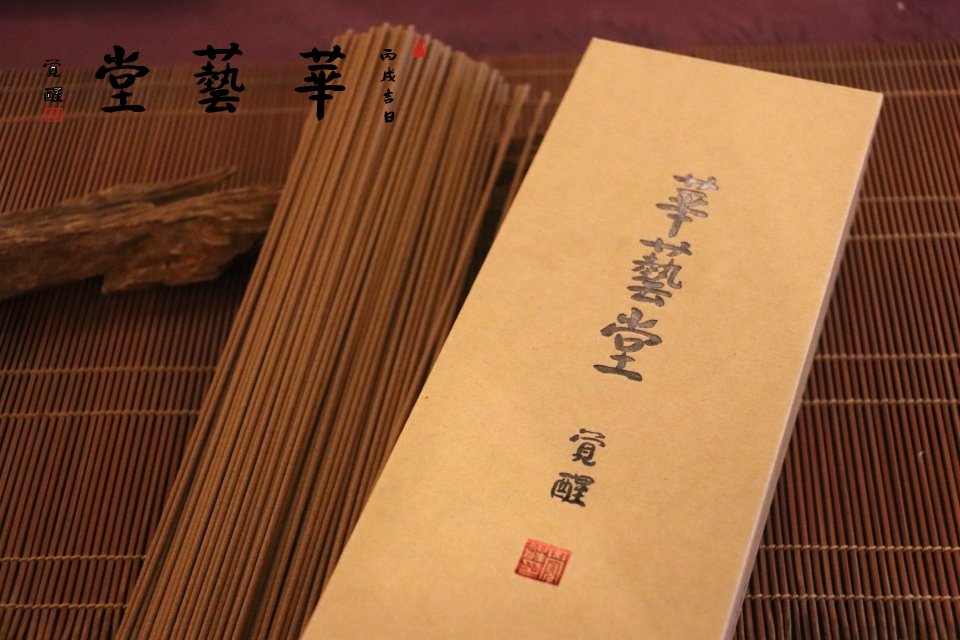 丙戌吉日
華藝堂
覚醒
華藝堂
覚醒